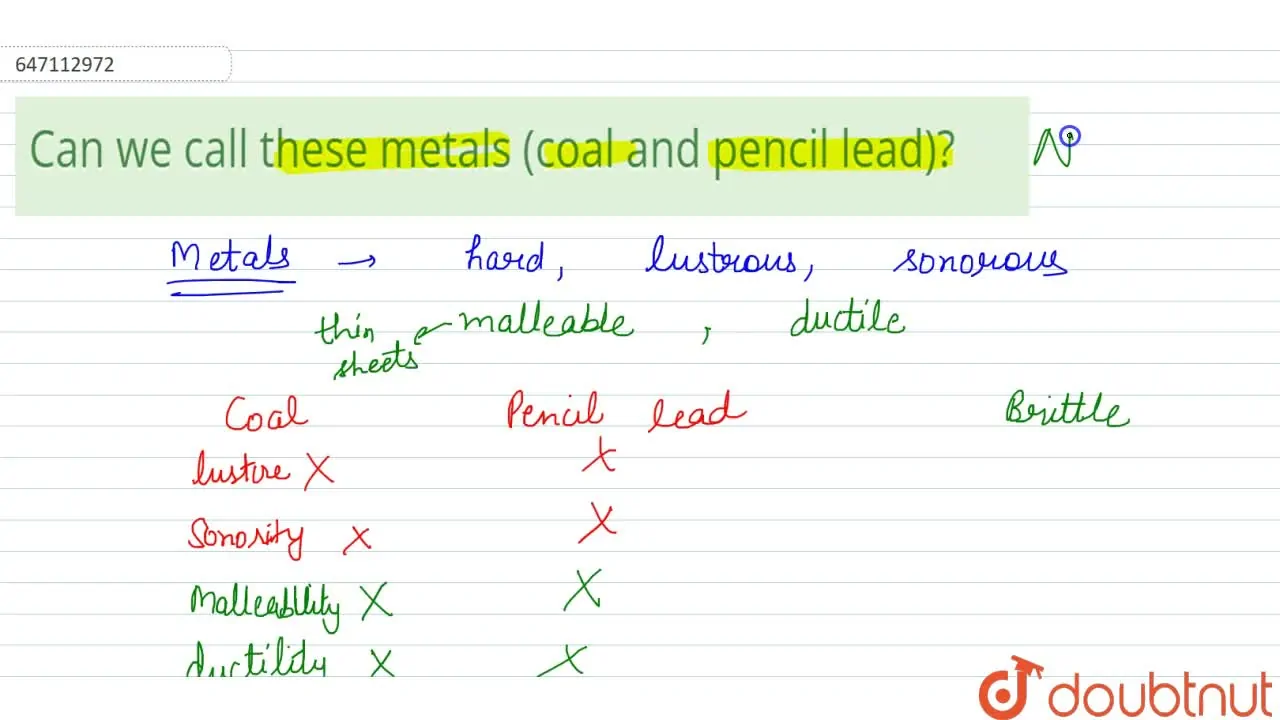 647112972
Can we call these metals (coal and pencil lead)? N
Metals → hard, lustrous, sonorous
thin sheets ← malleable, ductile
Coal Pencil lead Brittle
lustre X X
Sonority X X
Malleability X X
ductility X X
doubtnut